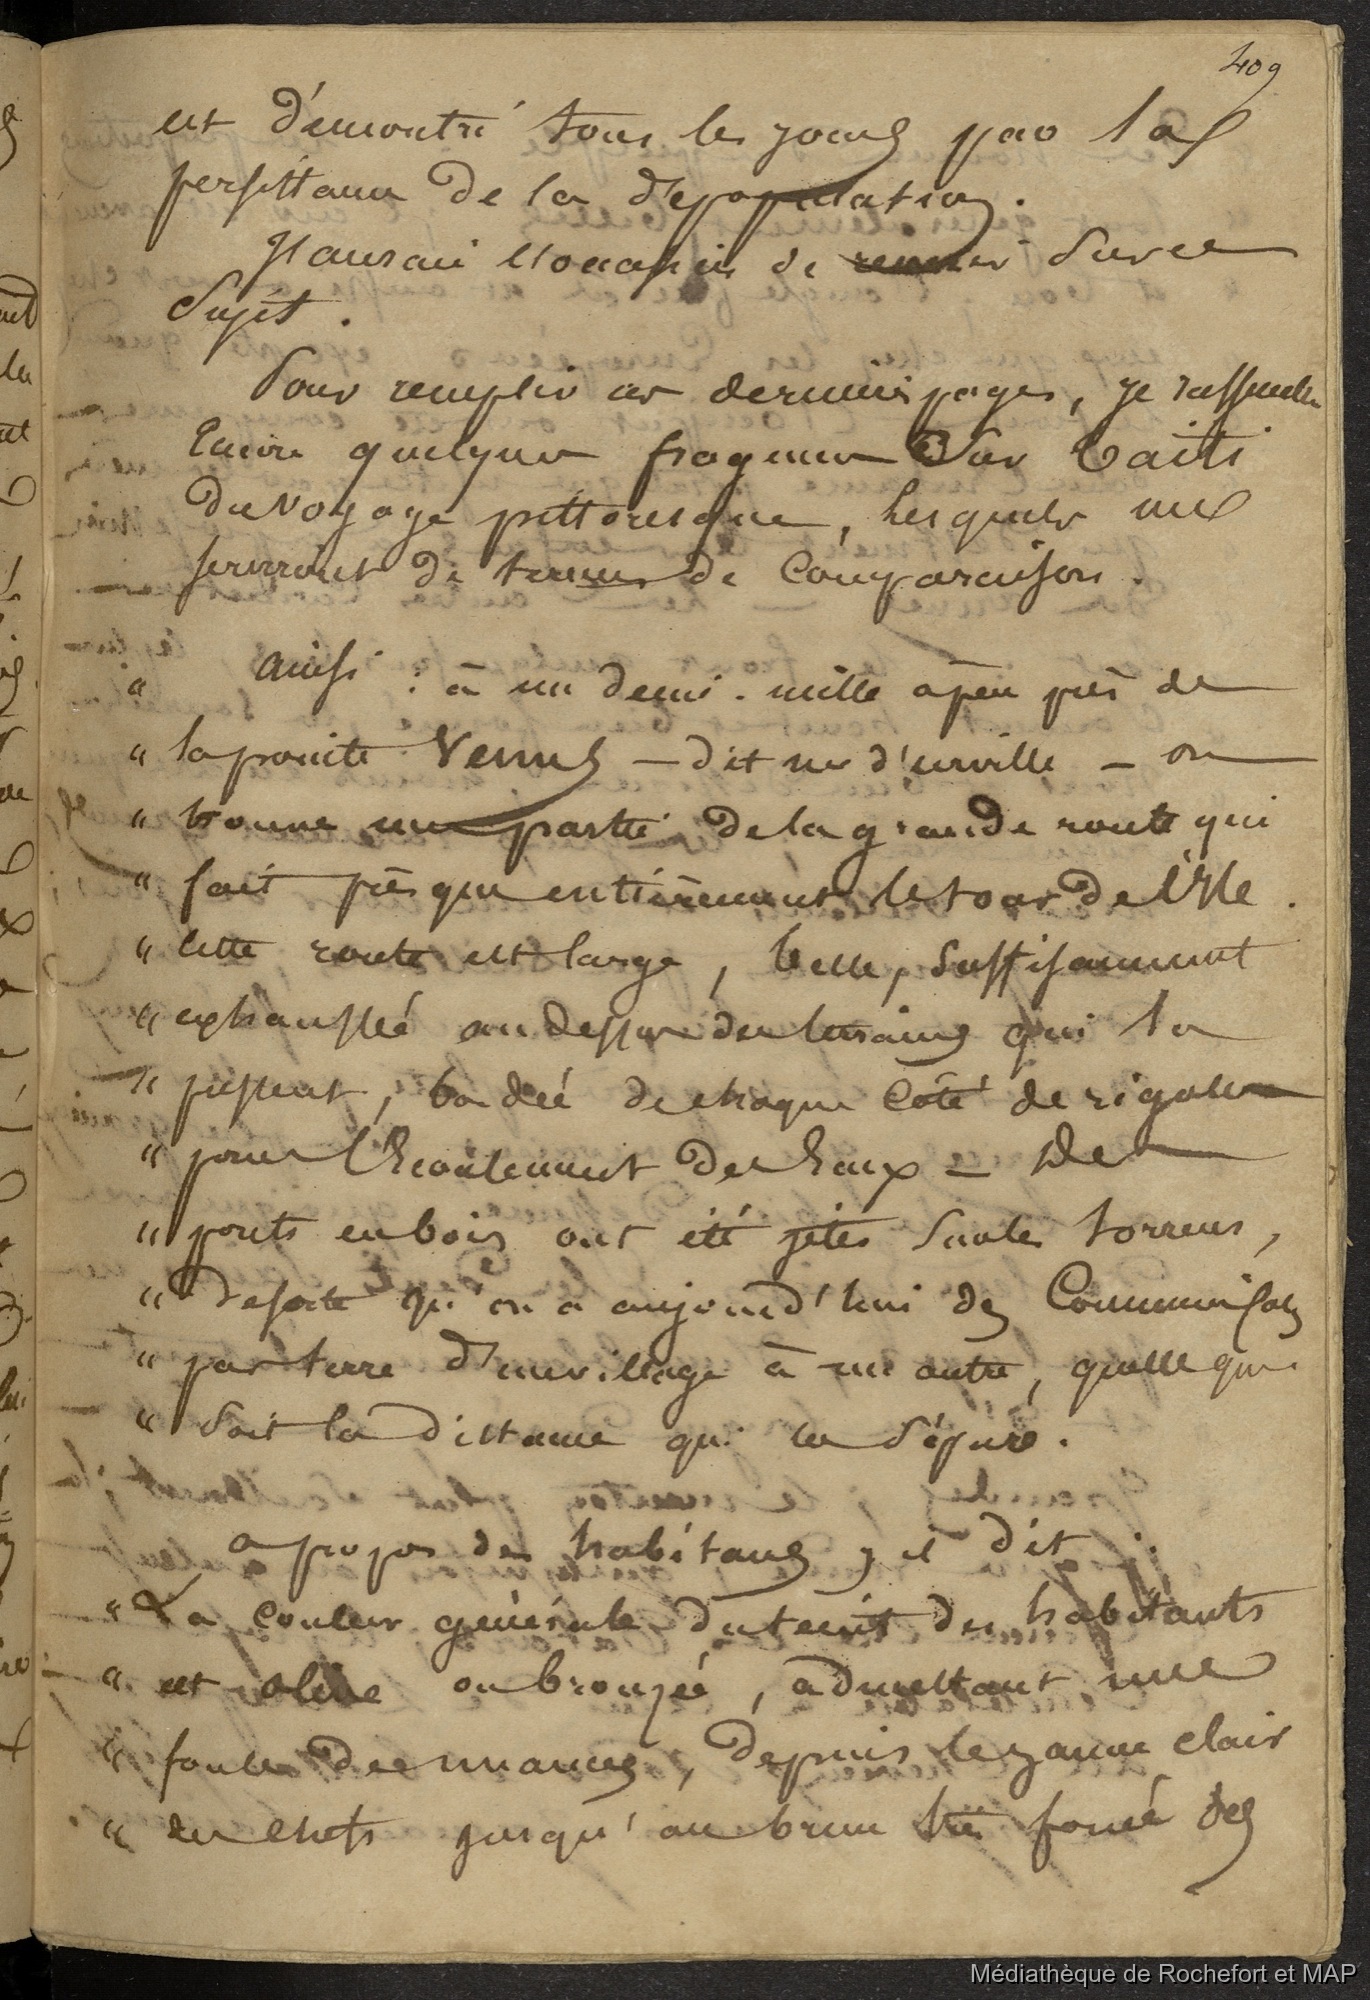 409
est démontré tous les jours par la
persistance de la dépopulation.
J'aurai l'occasion de revenir sur ce
sujet.
Pour remplir ces derniers pages, je rassemble
encore quelques fragmens sur Taïti
du voyage pittoresque, lesquels me
serviront de termes de comparaison.
" ainsi : à un demi-mille à peu près de
" la pointe Vénus — dit mr d'urville — on
" trouve une partie de la grande route qui
" fait présque entièrement le tour de l'Île.
" cette route est large, belle, suffisamment
" exhaussée au dessus des terrains qui la
" pressent, bordée de chaque côté de rigoles
" pour l'Écoulement des Eaux — Des
" ponts en bois ont été jétés sur les torrens,
" desorte qu'on a aujourd'hui des Communiçaons
" par terre d'un village à un autre, quelle que
" soit la distance qui les sépare.
a propos des habitans, il dit :
" La couleur générale du teint des habitants
" est olive ou bronzée, admettant une
" foule de nuances, depuis le jaune clair
" des chefs jusqu'au brun très foncé des
Médiathèque de Rochefort et MAP